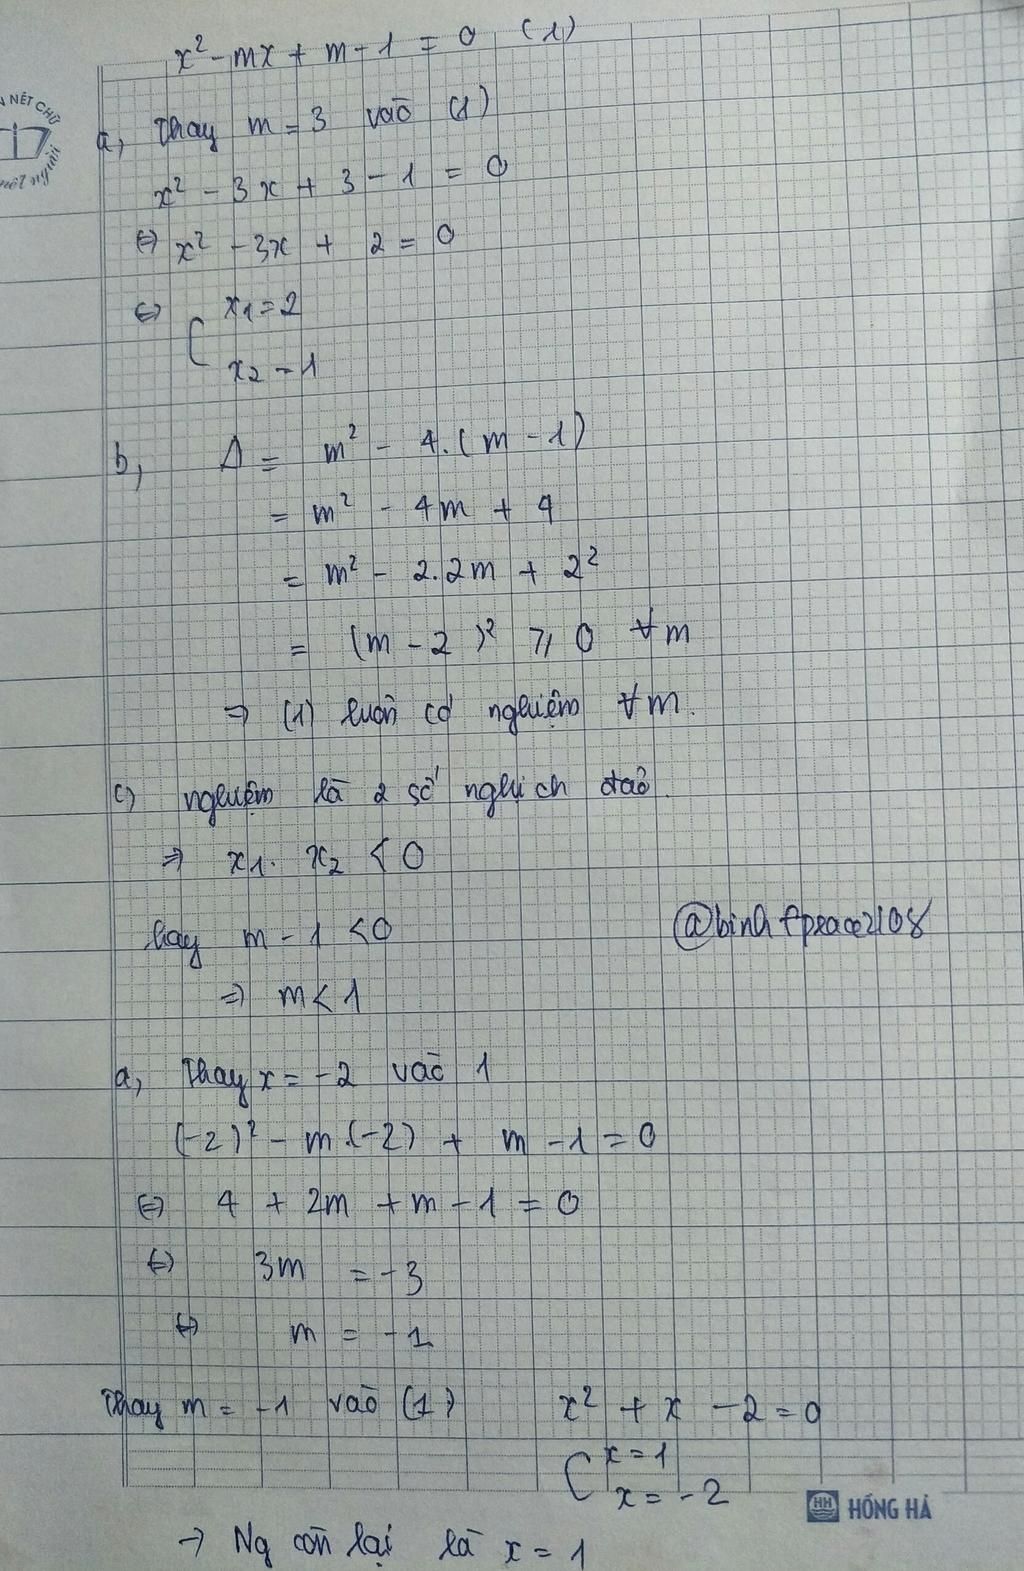 x² - mx + m - 1 = 0 (1)
NÉT CHỮ
nết người
a, Thay m = 3 vào (1)
x² - 3x + 3 - 1 = 0
⇔ x² - 3x + 2 = 0
⇔ [ x1 = 2
x2 = 1
b, Δ = m² - 4.(m - 1)
= m² - 4m + 4
= m² - 2.2m + 2²
= (m - 2)² ≥ 0 ∀m
⇒ (1) luôn có nghiệm ∀m.
c) nghiệm là 2 số nghịch đảo.
⇒ x1. x2 < 0
hay m - 1 < 0
@binhfpeace2108
⇒ m < 1
a, Thay x = -2 vào 1
(-2)² - m.(-2) + m - 1 = 0
⇔ 4 + 2m + m - 1 = 0
⇔ 3m = -3
⇔ m = -1
Thay m = -1 vào (1) x² + x - 2 = 0
[ x = 1
x = -2
HH HỒNG HÀ
→ Ng còn lại là x = 1